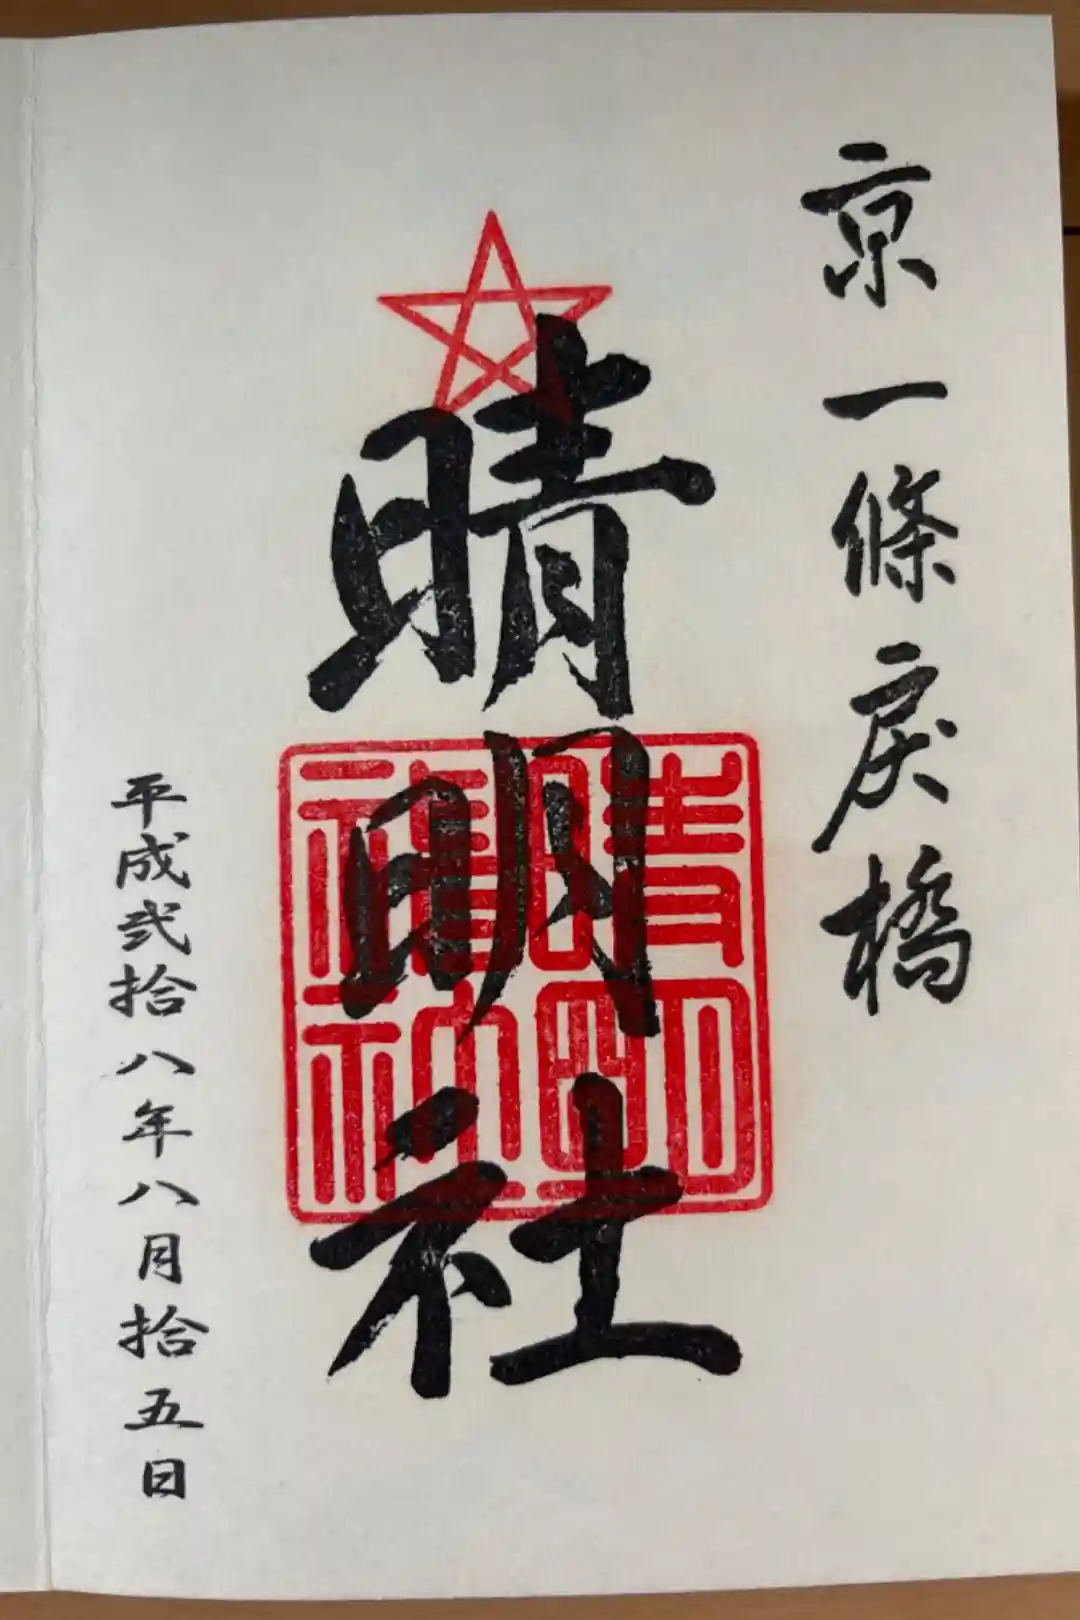 京一條戻橋
晴明社
平成弐拾八年八月拾五日